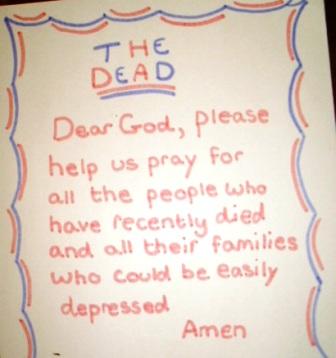 THE
DEAD
Dear God, please
help us pray for
all the people who
have recently died
and all their families
who could be easily
depressed
Amen